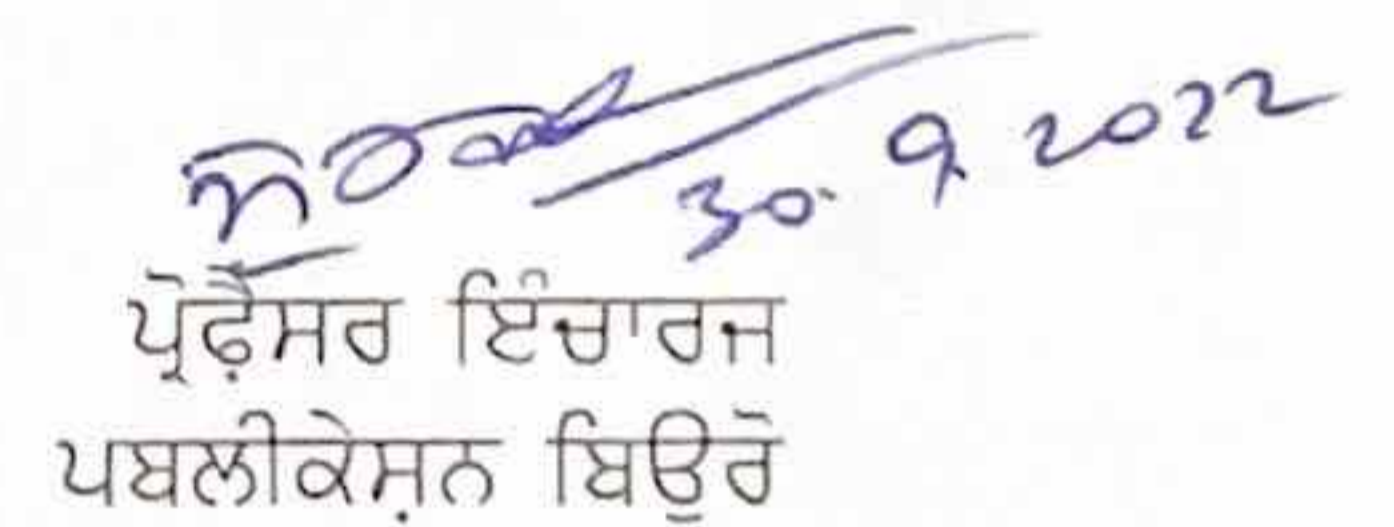 30. 9. 2022
ਪ੍ਰੋਫ਼ੈਸਰ ਇੰਚਾਰਜ
ਪਬਲੀਕੇਸ਼ਨ ਬਿਊਰੋ